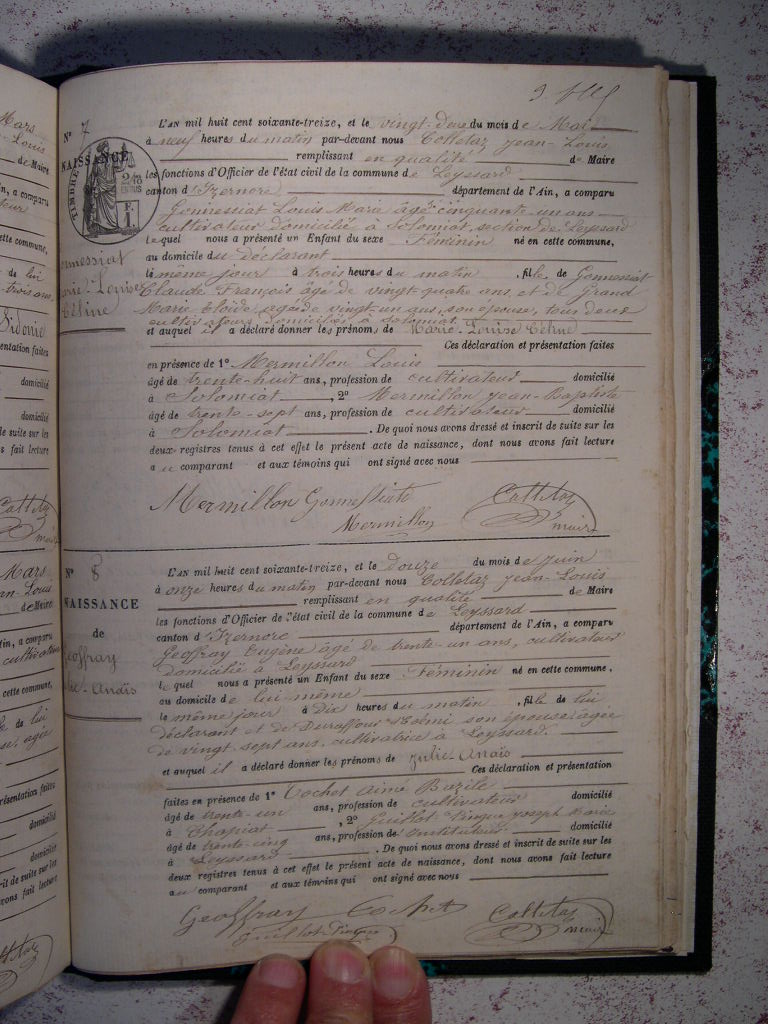 Mars
Louis
de Maire
in, a comparu
cette commune,
de lui
trois ans,
Sidonie
sentation faites
domicilié
domicilié
de suite sur les
s fait lecture
maire
Mars
an-Louis
de Maire
in, a comparu
cette commune,
de lui
agée
résentation faites
domicilié
domicilié
rit de suite sur les
vons fait lecture
N° 7
NAISSANCE
TIMBRE
Marie-Louise
Céline
L'AN mil huit cent soixante-treize, et le vingt-deux du mois de Mai
à neuf heures du matin par-devant nous Colletaz Jean-Louis
remplissant en qualité de Maire
les fonctions d'Officier de l'état civil de la commune de Leyssard
canton d'Izernore département de l'Ain, a comparu
Gonnessiat Louis Marie âgé cinquante-un ans
cultivateur domicilié à Solomiat, section de Leyssard
lequel nous a présenté un Enfant du sexe Féminin né en cette commune,
au domicile du déclarant
le même jour à trois heures du matin , fille de Gonnessiat
Claude François âgé de vingt-quatre ans et de Grand
Marie Éloïde agée de vingt-un ans, son épouse, tous deux
cultivateurs domiciliés à Solomiat
et auquel il a déclaré donner les prénoms de Marie-Louise Céline
Ces déclaration et présentation faites
en présence de 1° Mermillon Louis
âgé de trente-huit ans, profession de cultivateur domicilié
à Solomiat , 2° Mermillon Jean-Baptiste
âgé de trente-sept ans, profession de cultivateur domicilié
à Solomiat . De quoi nous avons dressé et inscrit de suite sur les
deux registres tenus à cet effet le présent acte de naissance, dont nous avons fait lecture
au comparant et aux témoins qui ont signé avec nous
Mermillon Gonnessiat Colletaz
Mermillon maire
N° 8
NAISSANCE
de
Geoffray
Julie-Anaïs
L'AN mil huit cent soixante-treize, et le douze du mois de Juin
à onze heures du matin par-devant nous Colletaz Jean-Louis
remplissant en qualité de Maire
les fonctions d'Officier de l'état civil de la commune de Leyssard
canton d'Izernore département de l'Ain, a comparu
Geoffray Eugène âgé de trente-un ans, cultivateur
domicilié à Leyssard
lequel nous a présenté un Enfant du sexe Féminin né en cette commune,
au domicile de lui même
le même jour à Dix heures du matin , fille de lui
déclarant et de Duraffour Noémi son épouse agée
de vingt sept ans, cultivatrice à Leyssard
et auquel il a déclaré donner les prénoms de Julie-Anaïs
Ces déclaration et présentation
faites en présence de 1° Cochet Aimé Bazile
âgé de trente-un ans, profession de cultivateur domicilié
à Chapiat , 2° Guillot Pirque Joseph Marie
âgé de trente-cinq ans, profession d'instituteur domicilié
à Leyssard . De quoi nous avons dressé et inscrit de suite sur les
deux registres tenus à cet effet le présent acte de naissance, dont nous avons fait lecture
au comparant et aux témoins qui ont signé avec nous
Geoffray Cochet Colletaz
Guillot-Pirque maire